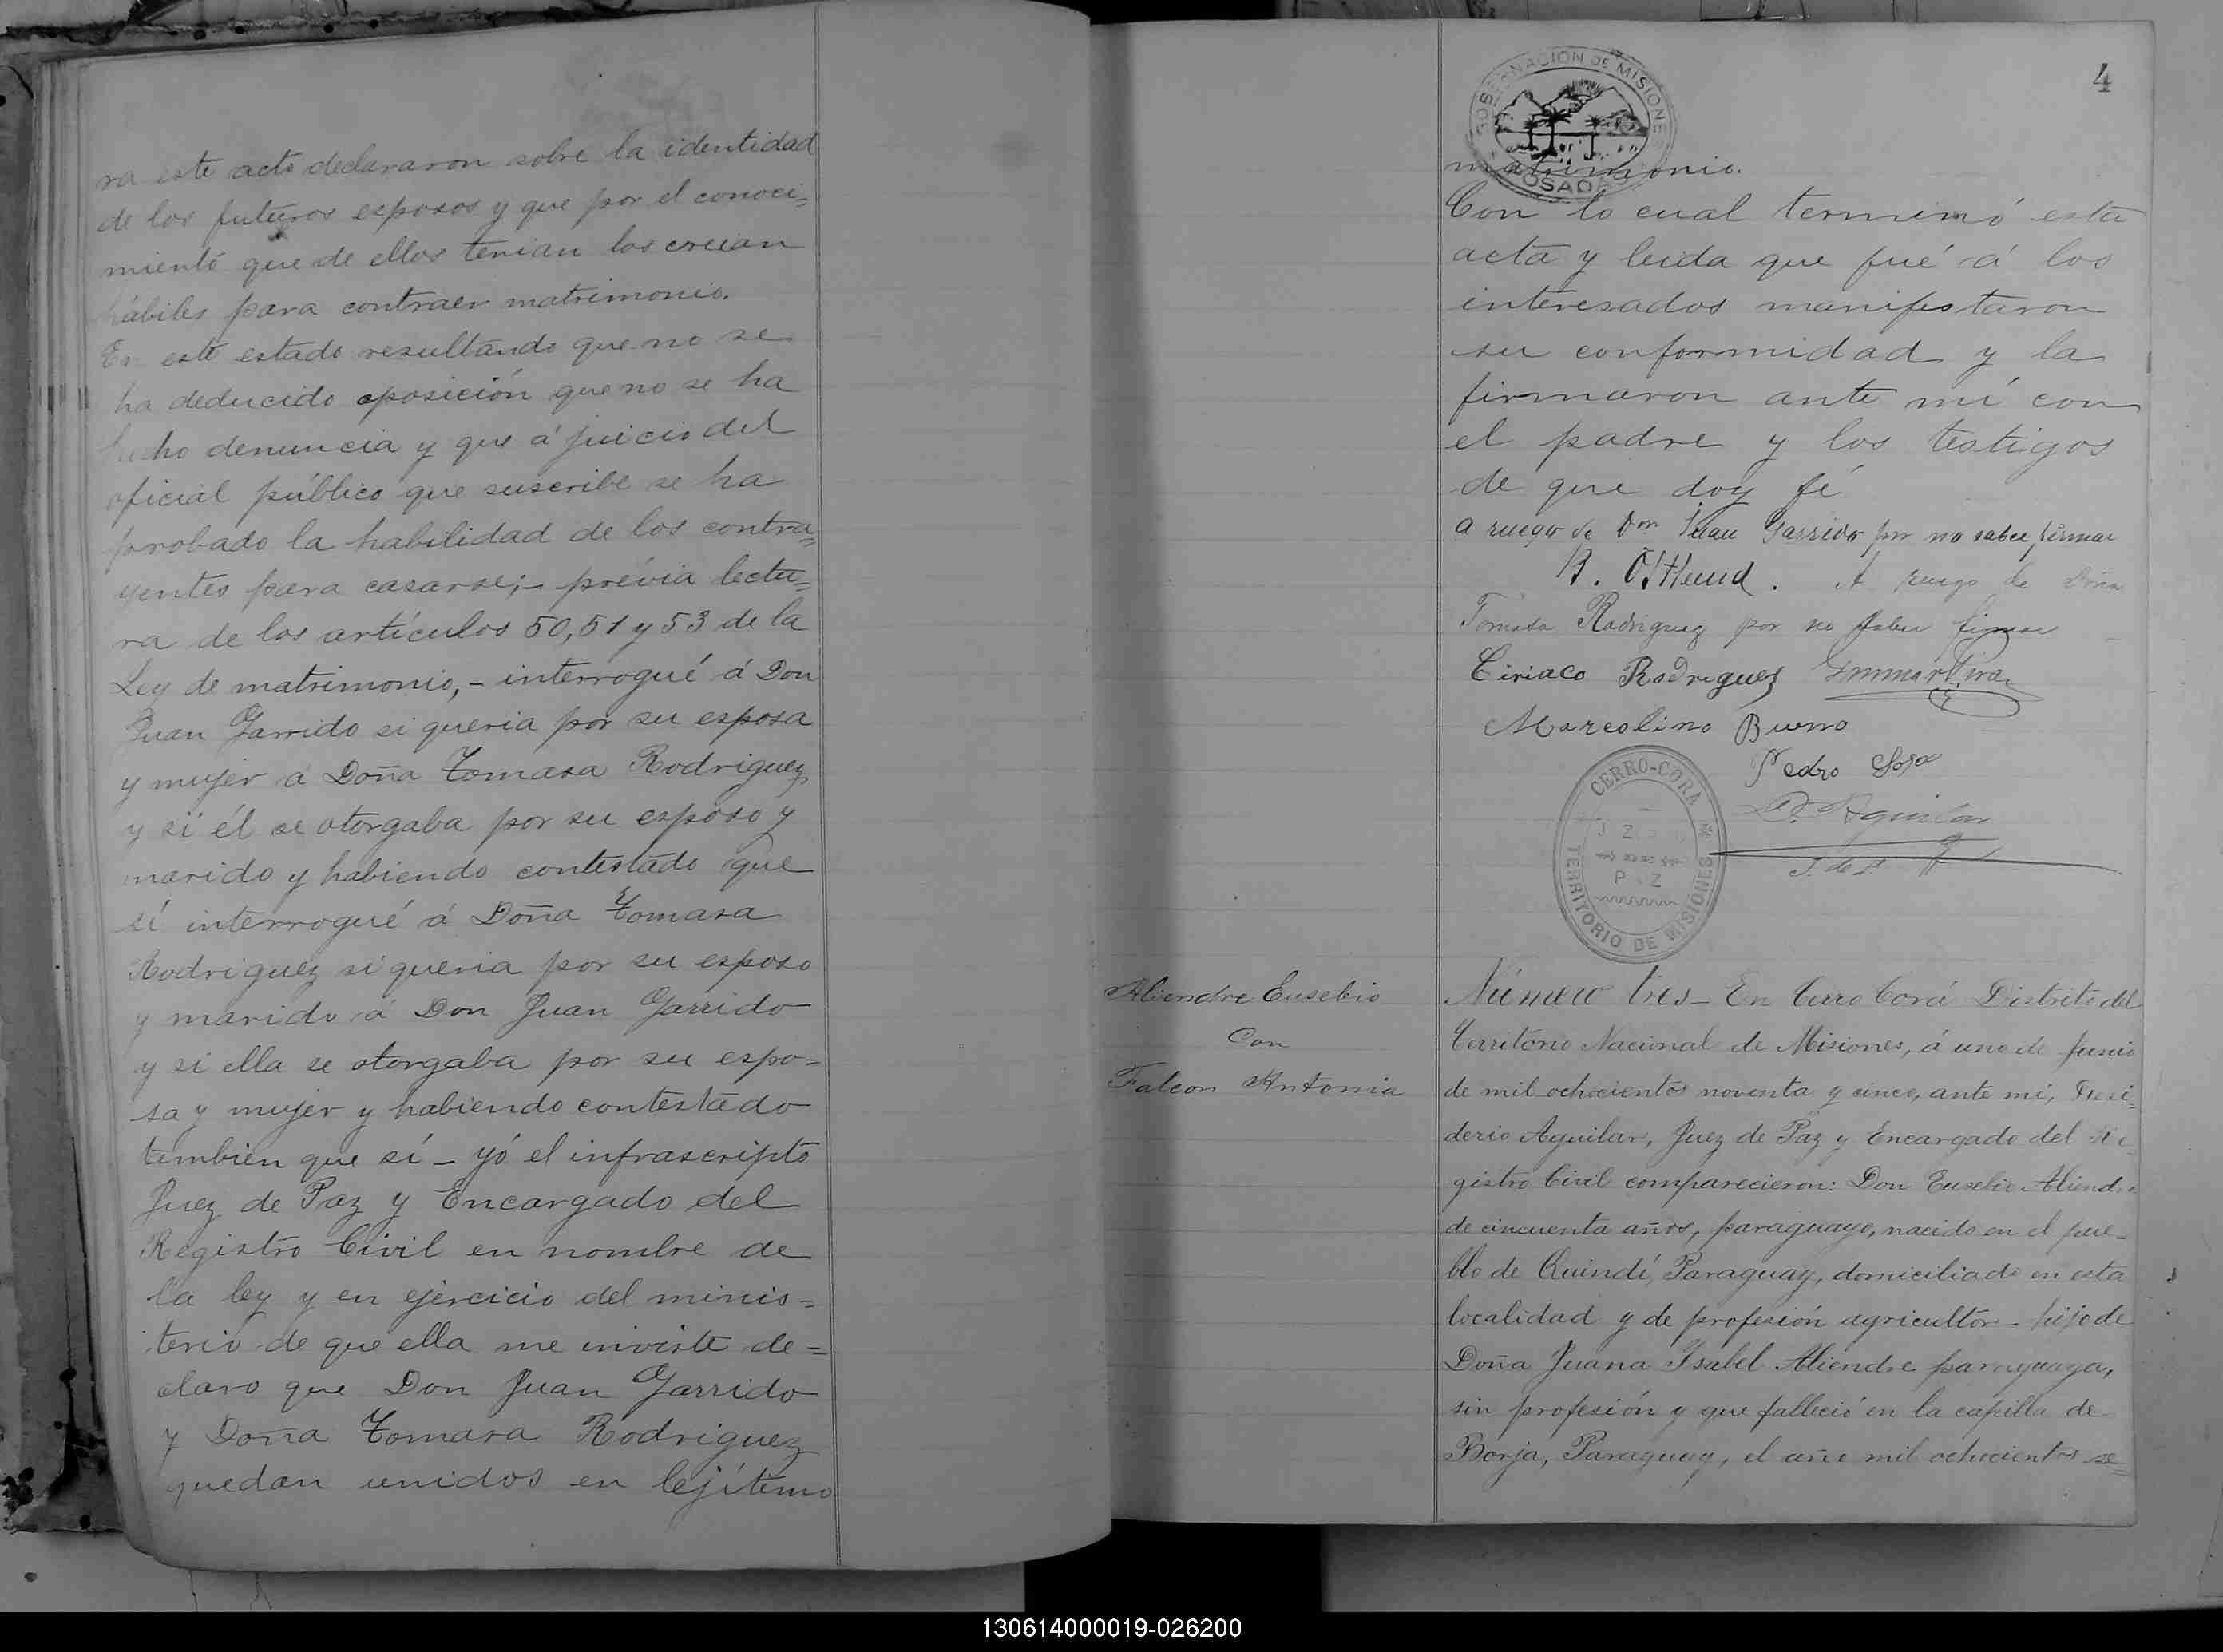 ra este acto declararon sobre la identidad
de los futuros esposos y que por el conoci=
miento que de ellos tenian los creian
hábiles para contraer matrimonio.
En este estado resultando que no se
ha deducido oposición que no se ha
hecho denuncia y que á juicio del
oficial público que suscribe se ha
probado la habilidad de los contra=
yentes para casarse;- prévia lectu=
ra de los artículos 50, 51 y 53 de la
Ley de matrimonio,- interrogué á Don
Juan Garrido si queria por su esposa
y mujer á Doña Tomasa Rodriguez
y si él se otorgaba por su esposo y
marido y habiendo contestado que
sí interrogué á Doña Tomasa
Rodriguez si queria por su esposo
y marido á Don Juan Garrido
y si ella se otorgaba por su espo=
sa y mujer y habiendo contestado
tambien que sí - yó el infrascripto
Juez de Paz y Encargado del
Registro Civil en nombre de
la ley y en ejercicio del minis=
terio de que ella me inviste de=
claro que Don Juan Garrido
y Doña Tomasa Rodriguez
quedan unidos en lejítimo
4
GOBERNACION DE MISIONES
POSADAS
matrimonio.
Con lo cual terminó esta
acta y leida que fué á los
interesados manifestaron
su conformidad y la
firmaron ante mí con
el padre y los testigos
de que doy fé
a ruego de Dn Juan Garrido por no saber firmar
B. A ruego de Doña
Tomasa Rodriguez por no saber firmar
Ciriaco Rodriguez
Marcolino Bueno
Pedro Sosa
D. Aguilar
J. de P.
CERRO-CORA
TERRITORIO DE MISIONES
Aliendre Eusebio
Con
Falcon Antonia
Número tres- En Cerro Corá Distrito del
Territorio Nacional de Misiones, á uno de Junio
de mil ochocientos noventa y cinco, ante mi, Desi=
derio Aguilar, Juez de Paz y Encargado del Re
gistro Civil comparecieron: Don Eusebio Aliendre
de cincuenta años, paraguayo, nacido en el pue-
blo de Quindí, Paraguay, domiciliado en esta
localidad y de profesión agricultor- hijo de
Doña Juana Ysabel Aliendre paraguaya,
sin profesión y que falleció en la capilla de
Borja, Paraguay, el año mil ochocientos se=
130614000019-026200